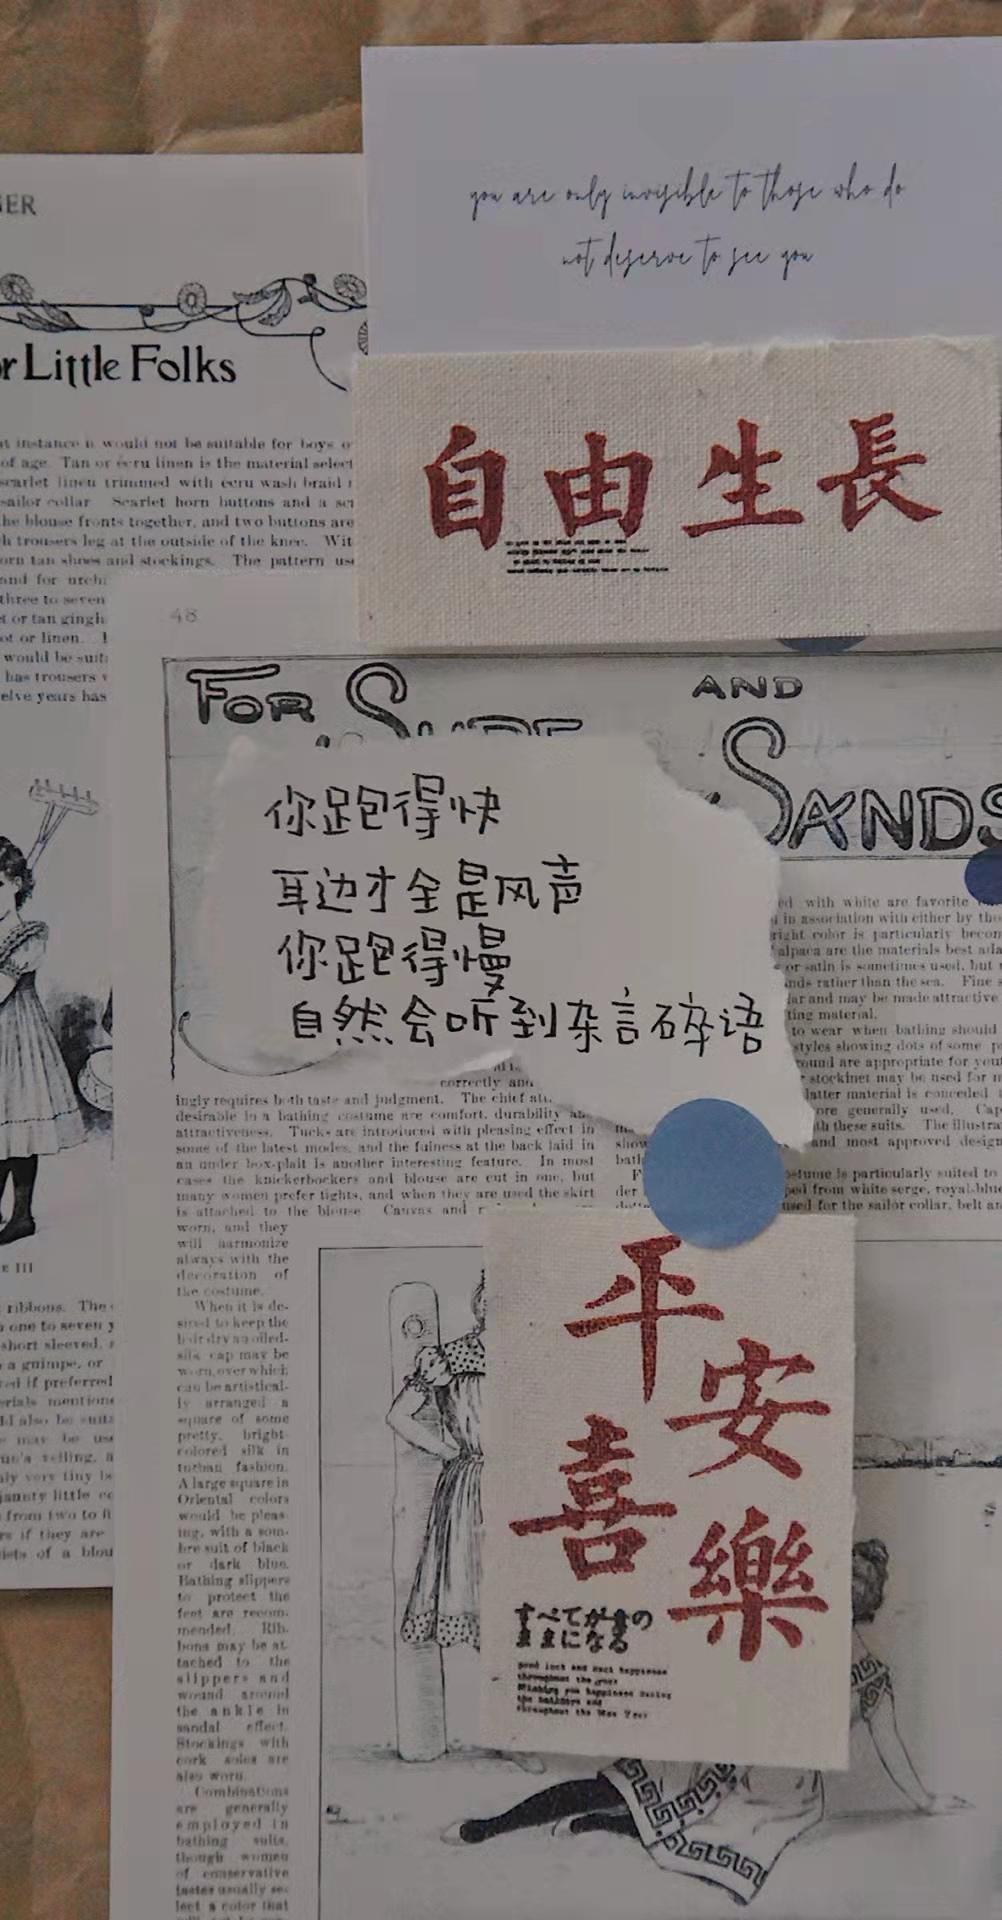 you are only invisible to those who do
not deserve to see you
Little Folks
would not be suitable for boys
of age. Tan or écru linen is the material
scarlet linen trimmed with écru wash braid
sailor collar Scarlet horn buttons and a
the blouse fronts together, and two buttons are
trousers leg at the outside of the knee.
tan shoes and stockings. The pattern
and for
three to seven
or tan
or linen.
would be
has trousers
years has
自由生長
48
FOR
AND
SANDS
你跑得快
耳边才全是风声
你跑得慢
自然会听到杂言碎语
with white are favorite
in association with either by
color is particularly
alpaca are the materials best
or satin is sometimes used, but
rather than the sea. Fine
and may be made attractive
material.
to wear when bathing should
styles showing dots of some
are appropriate for
stockinet may be used for
latter material is conceded
generally used.
these suits. The
and most approved
is particularly suited to
from white serge,
used for the sailor collar, belt
correctly and
ingly requires both taste and judgment. The chief
desirable in a bathing costume are comfort, durability
attractiveness. Tucks are introduced with pleasing effect in
some of the latest modes, and the fulness at the back laid in
an under box-plait is another interesting feature. In most
cases the knickerbockers and blouse are cut in one, but
many women prefer tights, and when they are used the skirt
is attached to the blouse Canvas and
worn, and they
will harmonize
always with the
decoration of
the costume.
When it is de-
sired to keep the
hair dry an oiled-
silk cap may be
worn, over which
can be artistical-
ly arranged a
square of some
pretty, bright-
colored silk in
turban fashion.
A large square in
Oriental colors
would be pleas-
ing, with a som-
bre suit of black
or dark blue.
Bathing slippers
to protect the
feet are recom-
mended. Rib-
bons may be at-
tached to the
slippers and
wound around
the ankle in
sandal effect.
Stockings with
cork soles are
also worn.
Combinations
are generally
employed in
bathing suits,
though women
of conservative
taste usually se-
lect a color that
III
ribbons. The
one to seven
short sleeved,
a guimpe, or
if preferred
mentioned
also be
may be
veiling,
very tiny
little
from two to
if they are
of a
平安
喜樂
すべてがきの
ままになる
good luck and much happiness
throughout the year
Wishing you happiness during
the holidays and
throughout the New Year